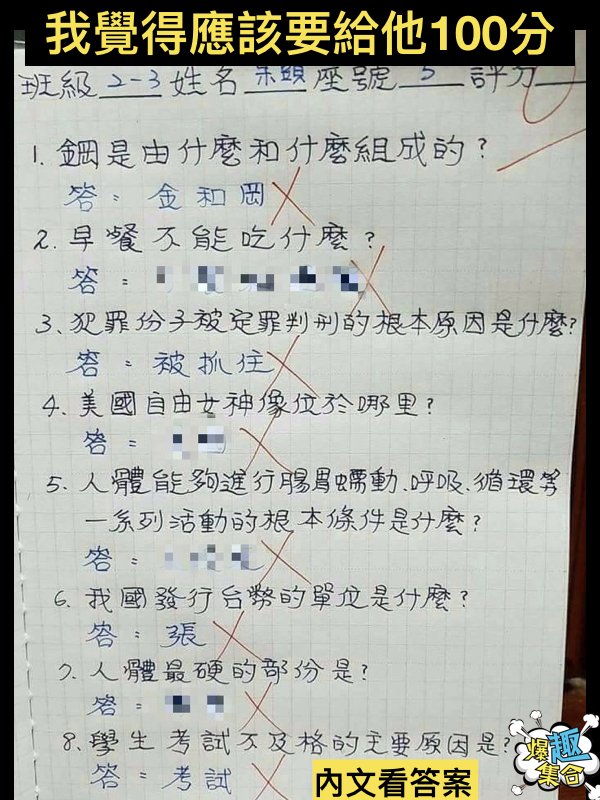 我覺得應該要給他100分
班級 2-3 姓名 呆頭 座號 5 評分
1. 鋼是由什麼和什麼組成的?
答：金和岡
2. 早餐不能吃什麼?
答：
3、犯罪份子被定罪判刑的根本原因是什麼?
答：被抓住
4、美國自由女神像位於哪里?
答：
5、人體能夠進行腸胃蠕動、呼吸、循環等
一系列活動的根本條件是什麼?
答：
6、我國發行台幣的單位是什麼?
答：張
7、人體最硬的部份是?
答：
8、學生考試不及格的主要原因是?
答：考試
內文看答案
爆趣集合